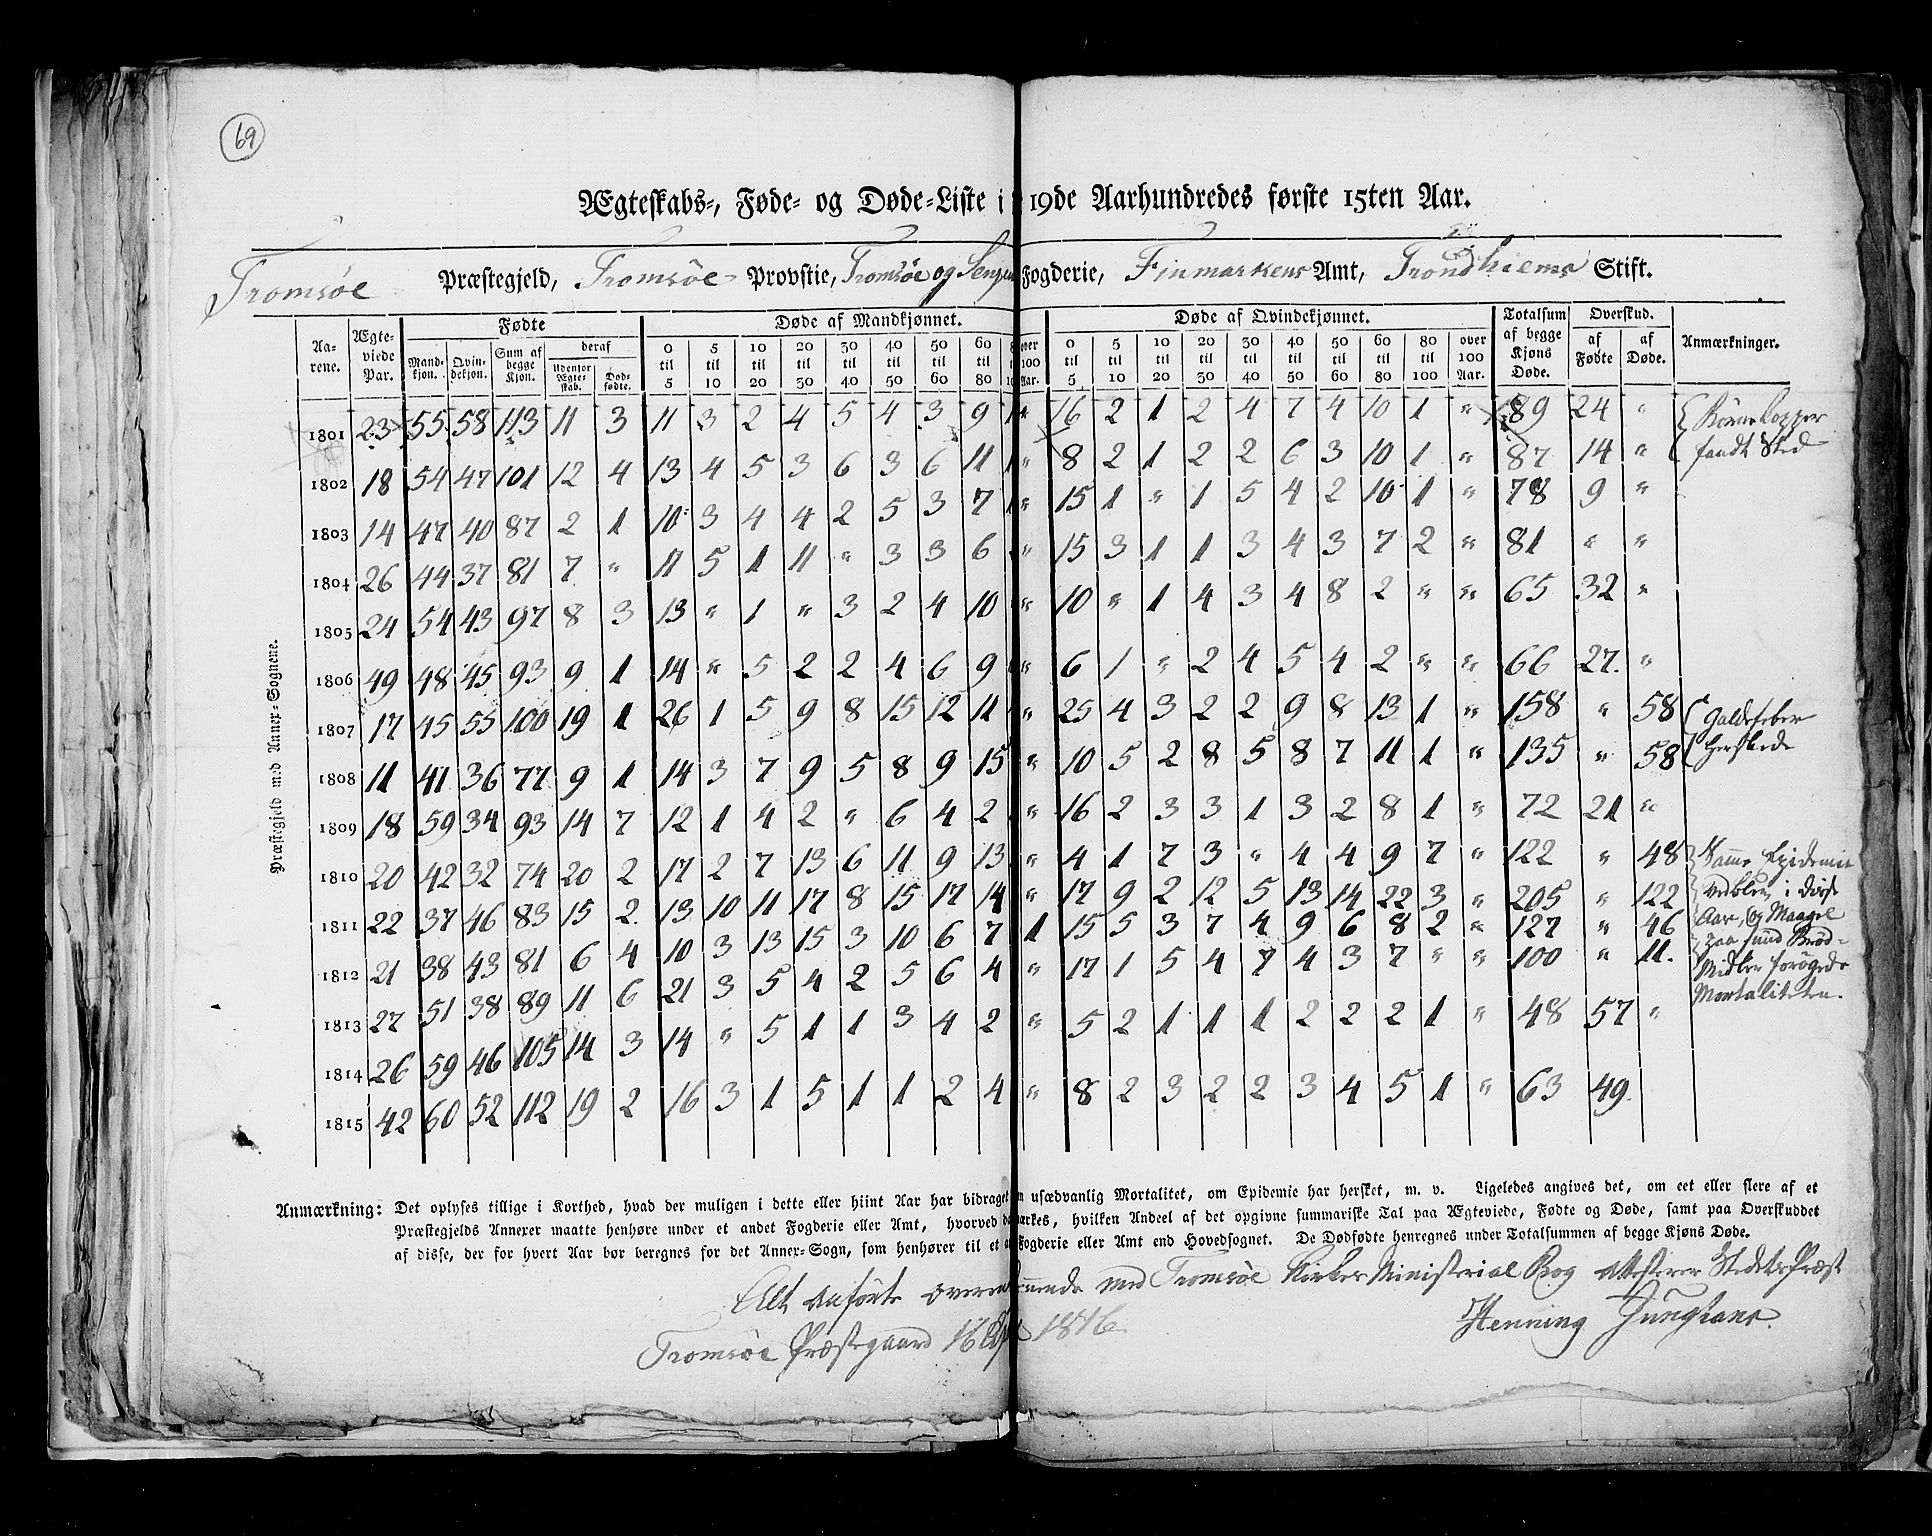 69
Ægteskabs-, Føde- og Døde-Liste i 19de Aarhundredes første 15ten Aar.
Tromsøe Præstegjeld, Tromsøe Provstie, Tromsøe og Senjen Fogderie, Finmarkens Amt, Trondhiems Stift.
Aarene. Ægteviede Par. Fødte Døde af Mandkjønnet. Døde af Qvindekjønnet. Totalsum af begge Kjøns Døde. Overskud. Anmærkninger.
Mandkjøn. Qvindekjøn. Sum af begge Kjøn. deraf Udenfor Ægteskab. Dødfødte. af Fødte af Døde.
0 til 5 5 til 10 10 til 20 20 til 30 30 til 40 40 til 50 50 til 60 60 til 80 over 100 Aar. 0 til 5 5 til 10 10 til 20 20 til 30 30 til 40 40 til 50 50 til 60 60 til 80 80 til 100 over 100 Aar.
Præstegjeld med Annex-Sognene.
1801 23 55 58 113 11 3 11 3 2 4 5 4 3 9 1 " 16 2 1 2 4 7 4 10 1 " 89 24 "
1802 18 54 47 101 12 4 13 4 5 3 6 3 6 11 1 " 8 2 1 2 2 6 3 10 1 " 87 14 " fandt Sted
1803 14 47 40 87 2 1 10 3 4 4 2 5 3 7 " 15 1 " 1 5 4 2 10 1 " 78 9 "
1804 26 44 37 81 7 " 11 5 1 11 " 3 3 6 " 15 3 1 1 3 4 3 7 2 " 81 " "
1805 24 54 43 97 8 3 13 " 1 " 3 2 4 10 " 10 " 1 4 3 4 8 2 " " 65 32 "
1806 49 48 45 93 9 1 14 " 5 2 2 4 6 9 " 6 1 " 2 4 5 4 2 " " 66 27. "
1807 17 45 55 100 19 1 26 1 5 9 8 15 12 11 " 25 4 3 2 2 9 8 13 1 " 158 " 58 Galdefeber
1808 11 41 36 77 9 1 14 3 7 9 5 8 9 15 " 10 5 2 8 5 8 7 11 1 " 135 " 58 herskede
1809 18 59 34 93 14 7 12 1 4 2 " 6 4 2 " 16 2 3 3 1 3 2 8 1 " 72 21 "
1810 20 42 32 74 20 2 17 2 7 13 6 11 9 13 " 4 1 7 3 " 4 4 9 7 " 122 " 48 Samme Epidemie
1811 22 37 46 83 15 2 13 10 11 17 8 15 17 14 " 17 9 2 12 5 13 14 22 3 " 205 " 122 vedblev i disse
1812 21 38 43 81 6 4 10 3 13 15 3 10 6 7 1 15 5 3 7 4 9 6 8 2 " 127 " 46 Aar, og Mangel
1813 27 51 38 89 11 6 21 3 5 4 2 5 6 4 " 17 1 5 4 7 4 3 7 " " 100 " 11. paa sund Brød-
Midler forøgede
Mortaliteten.
1814 26 59 46 105 14 3 14 " 5 1 1 3 4 2 " 5 2 1 1 1 2 2 2 1 " 48 57 "
1815 42 60 52 112 19 2 16 3 1 5 1 1 2 4 " 8 2 3 2 2 3 4 5 1 " 63 49.
Anmærkning: Det oplyses tillige i Korthed, hvad der muligen i dette eller hiint Aar har bidraget usædvanlig Mortalitet, om Epidemie har hersket, m. v. Ligeledes angives det, om eet eller flere af et
Præstegjelds Annexer maatte henhøre under et andet Fogderie eller Amt, hvorved hvilken Andeel af det opgivne summariske Tal paa Ægteviede, Fødte og Døde, samt paa Overskuddet
af disse, der for hvert Aar bør beregnes for det Annex-Sogn, som henhører til et Fogderie eller Amt end Hovedsognet. De Dødfødte henregnes under Totalsummen af begge Kjøns Døde.
Alt anførte med Tromsøe Kirkes Ministerial Bog attesterer Stedets Præst
Tromsøe Præstegaard 1816. Henning Junghans.